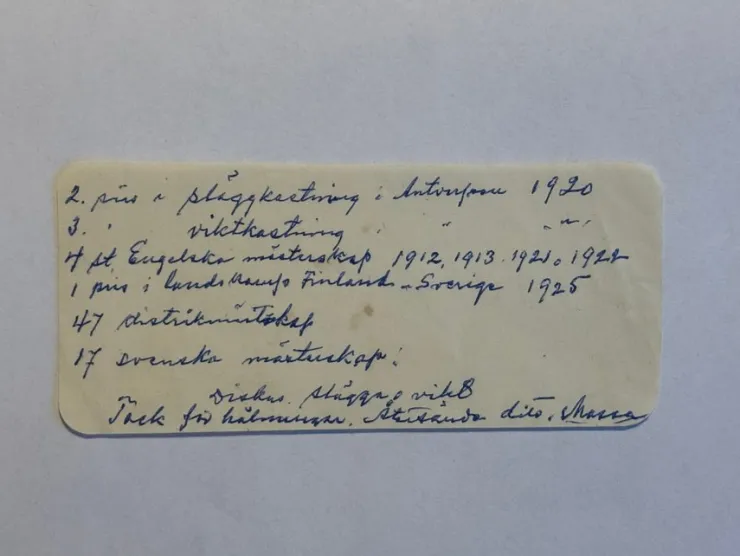 2. pris i släggkastning i Antverpen 1920
3. " viktkastning i " " " .
4 st Engelska mästerskap 1912, 1913. 1921 o 1922
1 pris i landskamp Finland - Sverige 1925
47 distriktmästskap
17 svenska mästerskap.
Diskus. slägga o vikt
Tack för hälsningar. Återsända dito.